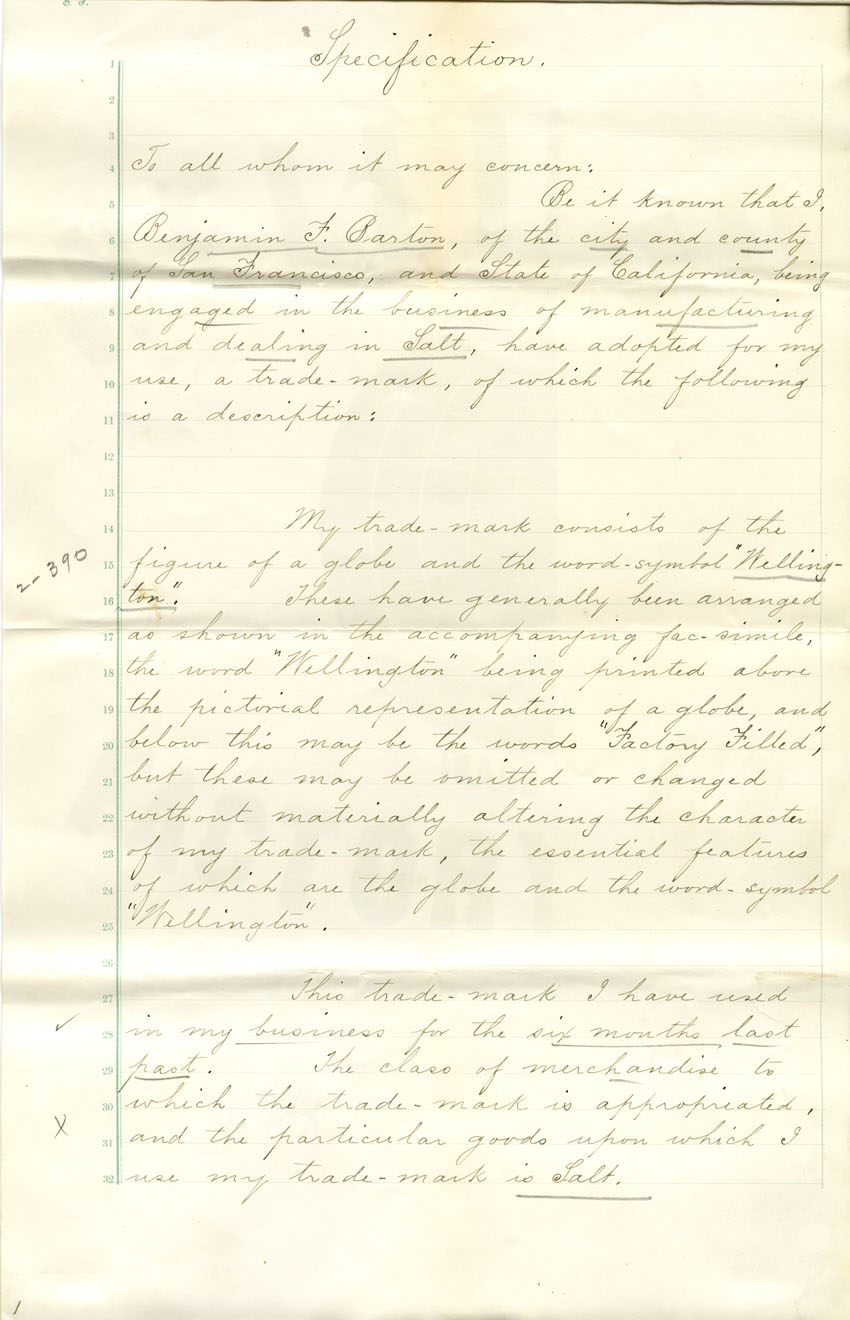 Specification.
To all whom it may concern:
Be it known that I,
Benjamin F. Barton, of the city and county
of San Francisco, and State of California, being
engaged in the business of manufacturing
and dealing in Salt, have adopted for my
use, a trade-mark, of which the following
is a description:
My trade-mark consists of the
figure of a globe and the word-symbol "Welling-
ton". These have generally been arranged
as shown in the accompanying fac-simile,
the word "Wellington" being printed above
the pictorial representation of a globe, and
below this may be the words "Factory Filled",
but these may be omitted or changed
without materially altering the character
of my trade-mark, the essential features
of which are the globe and the word-symbol
"Wellington".
This trade-mark I have used
in my business for the six months last
past. The class of merchandise to
which the trade-mark is appropriated,
and the particular goods upon which I
use my trade-mark is Salt.
2-390
1
1
2
3
4
5
6
7
8
9
10
11
12
13
14
15
16
17
18
19
20
21
22
23
24
25
26
27
28
29
30
31
32